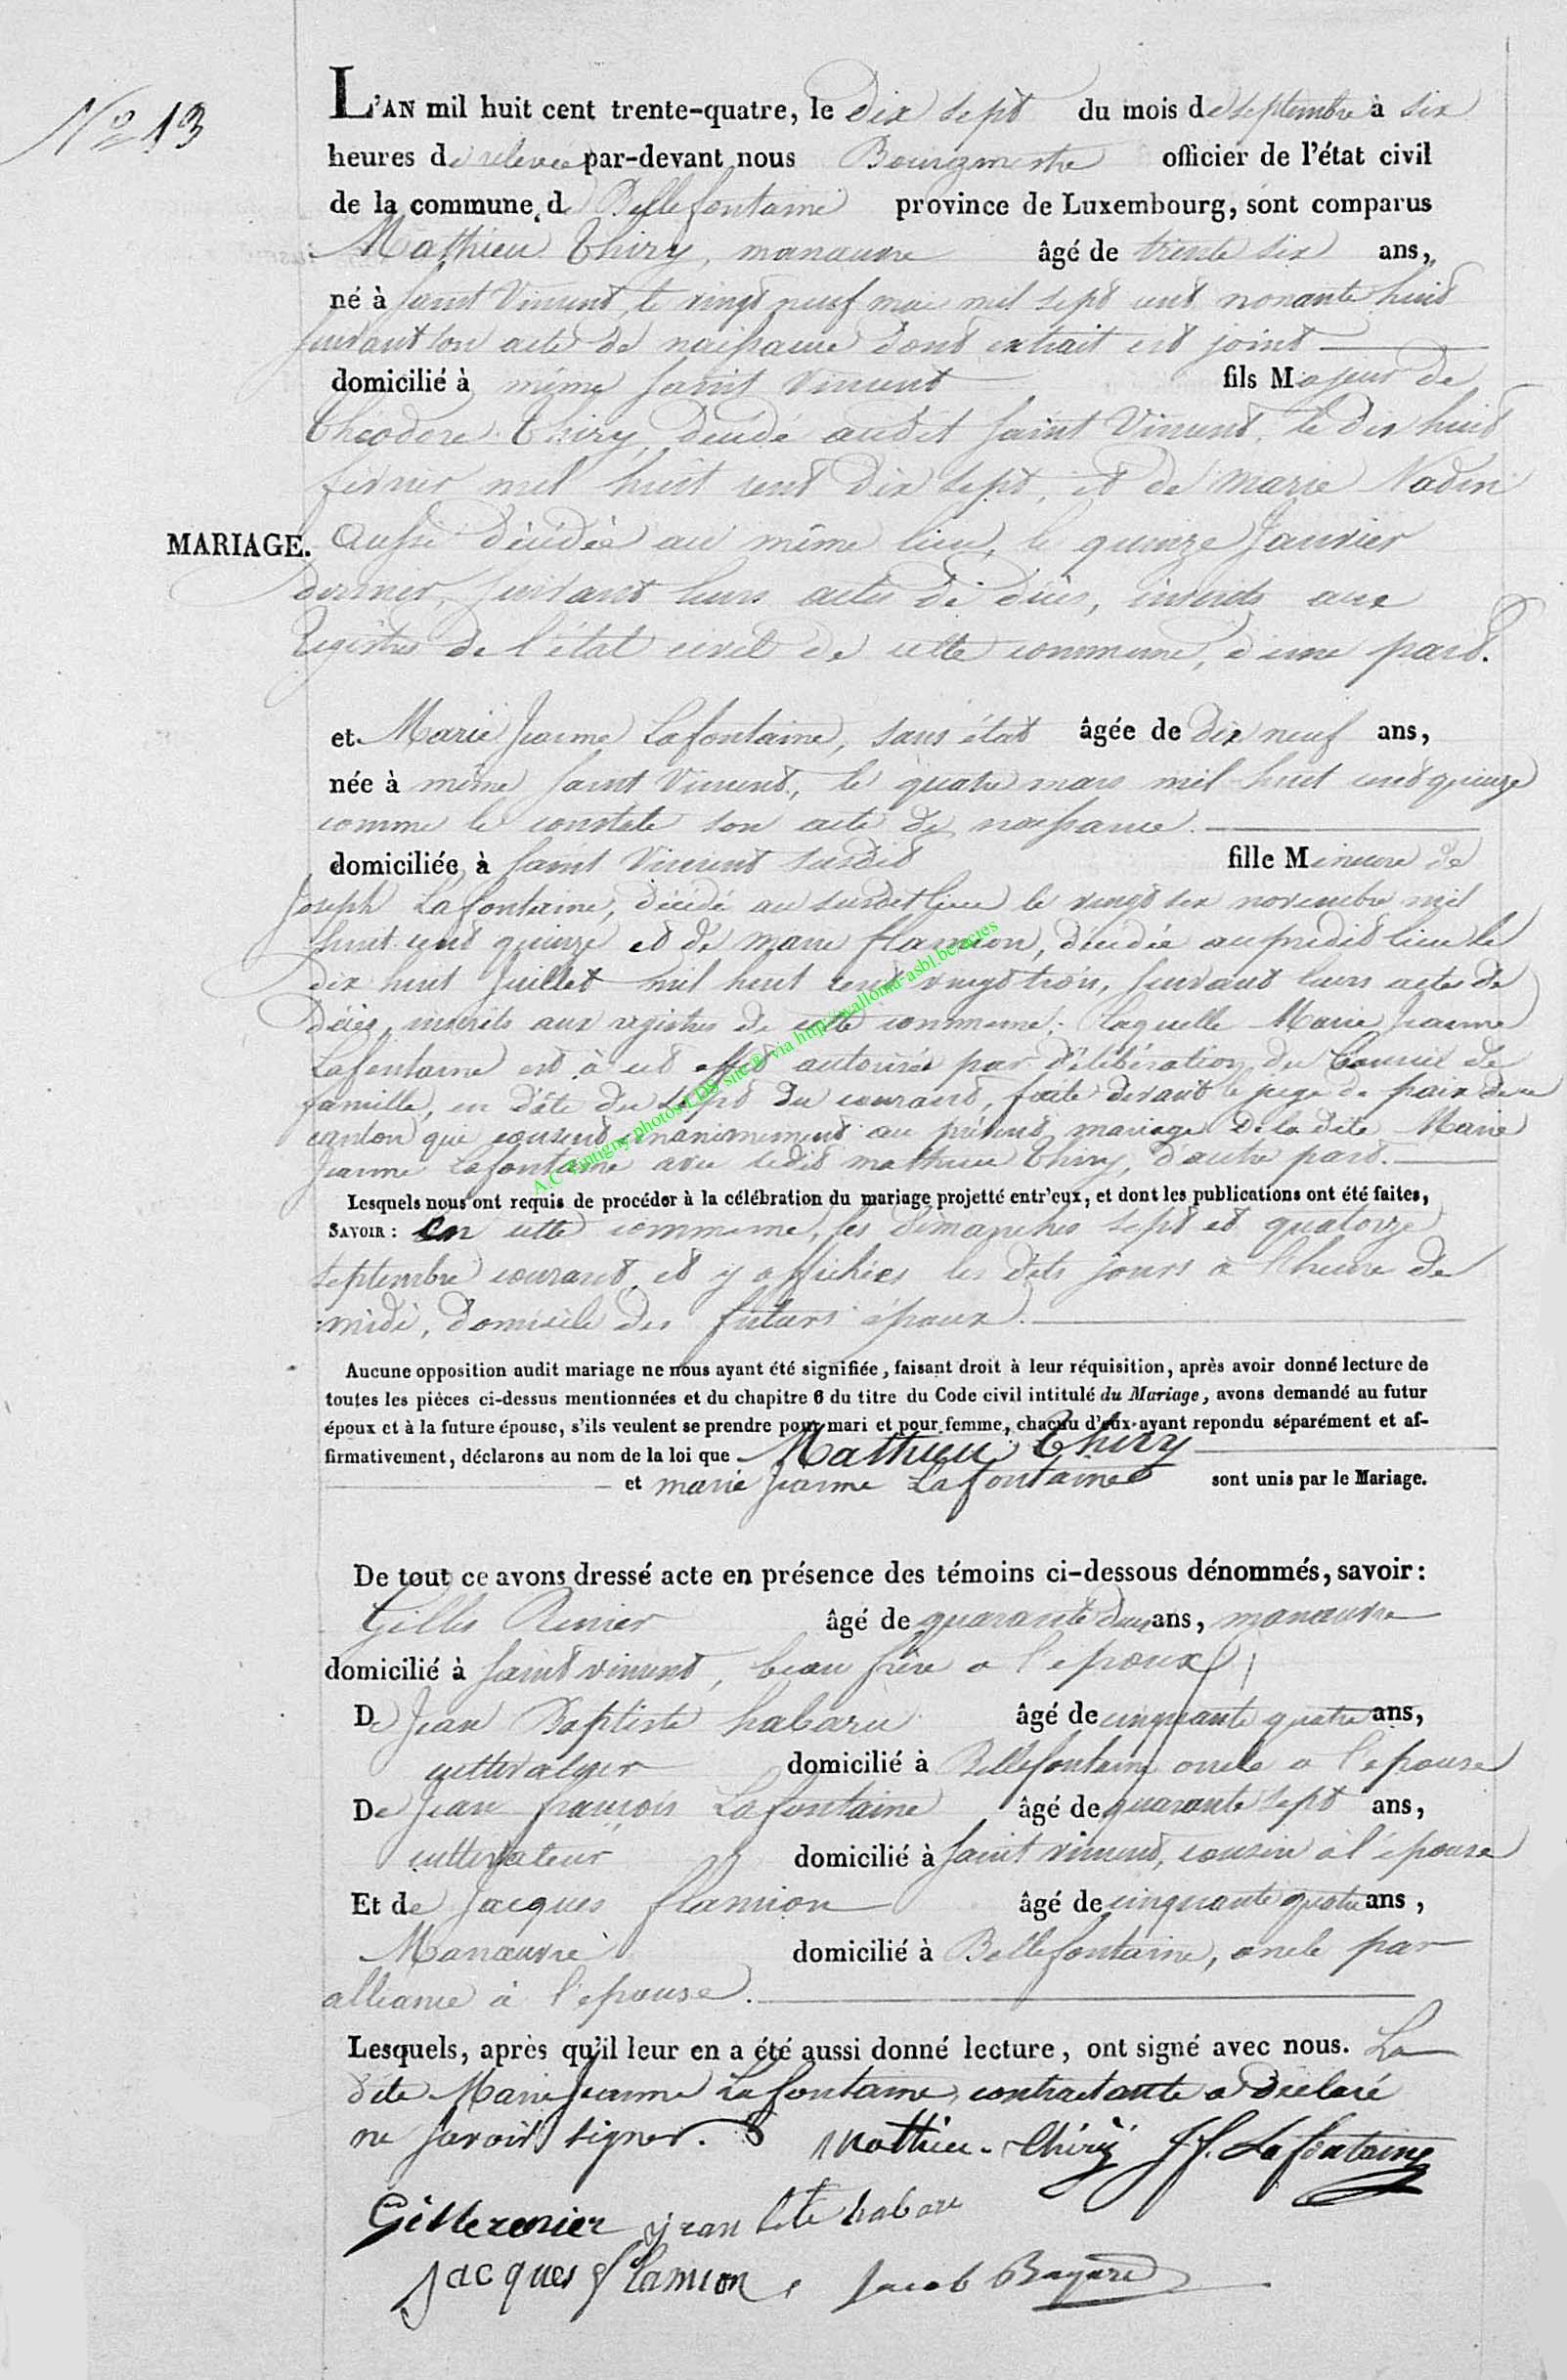 No 13
L'AN mil huit cent trente-quatre, le dix sept du mois de septembre à six
heures de relevée par-devant nous Bourgmestre officier de l'état civil
de la commune de Bellefontaine province de Luxembourg, sont comparus
Mathieu Thiry, manœuvre âgé de trente six ans,
né à Saint Vincent, le vingt neuf mai mil sept cent nonante huit
suivant son acte de naissance dont extrait est joint
domicilié à même Saint Vincent fils Majeur de
Théodore Thiry, décédé audit Saint Vincent, le dix huit
février mil huit cent dix sept, et de Marie Nadin
MARIAGE.
Aussi décédée au même lieu, le quinze Janvier
dernier, suivant leurs actes de décès, inscrits aux
Registres de l'état civil de cette commune, d'une part.
et Marie Jeanne Lafontaine, sans état âgée de dix neuf ans,
née à même Saint Vincent, le quatre mars mil huit cent quinze
comme le constate son acte de naissance.
domiciliée à Saint Vincent susdit fille Mineure de
Joseph Lafontaine, décédé au susdit lieu le vingt six novembre mil
huit cent quinze et de Marie flamion, décédée au predit lieu le
dix huit Juillet mil huit cent vingt trois, suivant leurs actes de
décès, inscrits aux registres de cette commune; laquelle Marie Jeanne
Lafontaine est à cet effet autorisée par délibération du Conseil de
famille, en date du sept du courant, faite devant le juge de paix de ce
canton qui consent unanimement au présent mariage de la dite Marie
Jeanne Lafontaine avec ledit mathieu Thiry, d'autre part.
A.C. Tintigny photos LDS site ® via http://wallonia-asbl.be/actes
Lesquels nous ont requis de procéder à la célébration du mariage projetté entr'eux, et dont les publications ont été faites,
SAVOIR : En cette commune, les dimanches sept et quatorze
septembre courant et y affichées les dits jours à l'heure de
midi, domicile des futurs époux.
Aucune opposition audit mariage ne nous ayant été signifiée, faisant droit à leur réquisition, après avoir donné lecture de
toutes les pièces ci-dessus mentionnées et du chapitre 6 du titre du Code civil intitulé du Mariage, avons demandé au futur
époux et à la future épouse, s'ils veulent se prendre pour mari et pour femme, chacun d'eux ayant repondu séparément et af-
firmativement, déclarons au nom de la loi que Mathieu Thiry
et marie Jeanne Lafontaine sont unis par le Mariage.
De tout ce avons dressé acte en présence des témoins ci-dessous dénommés, savoir :
Gilles Renier âgé de quarante deux ans, manœuvre
domicilié à Saint vincent, beau frère a l'epoux
De Jean Baptiste habaru âgé de cinquante quatre ans,
cultivateur domicilié à Bellefontaine oncle a l'epouse
De Jean françois Lafontaine âgé de quarante sept ans,
cultivateur domicilié à Saint vincent, cousin à l'épouse
Et de Jacques flamion âgé de cinquante quatre ans,
Manœuvre domicilié à Bellefontaine, oncle par
alliance à l'epouse.
Lesquels, après qu'il leur en a été aussi donné lecture, ont signé avec nous. La
dite Marie Jeanne Lafontaine, contractante a déclaré
ne savoir signer.
Mathieu Thiry J f. Lafontaine
Gille renier jean bte habaru
Jacques flamion Jacob Bayard